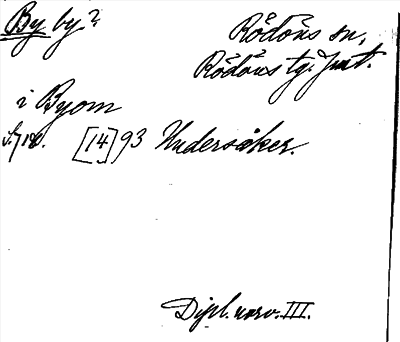 By by?
Rödöns sn,
Rödöns tg. Jmt.
i Byom
S. 180. [14]93 Undersåker.
Dipl. norv. III.